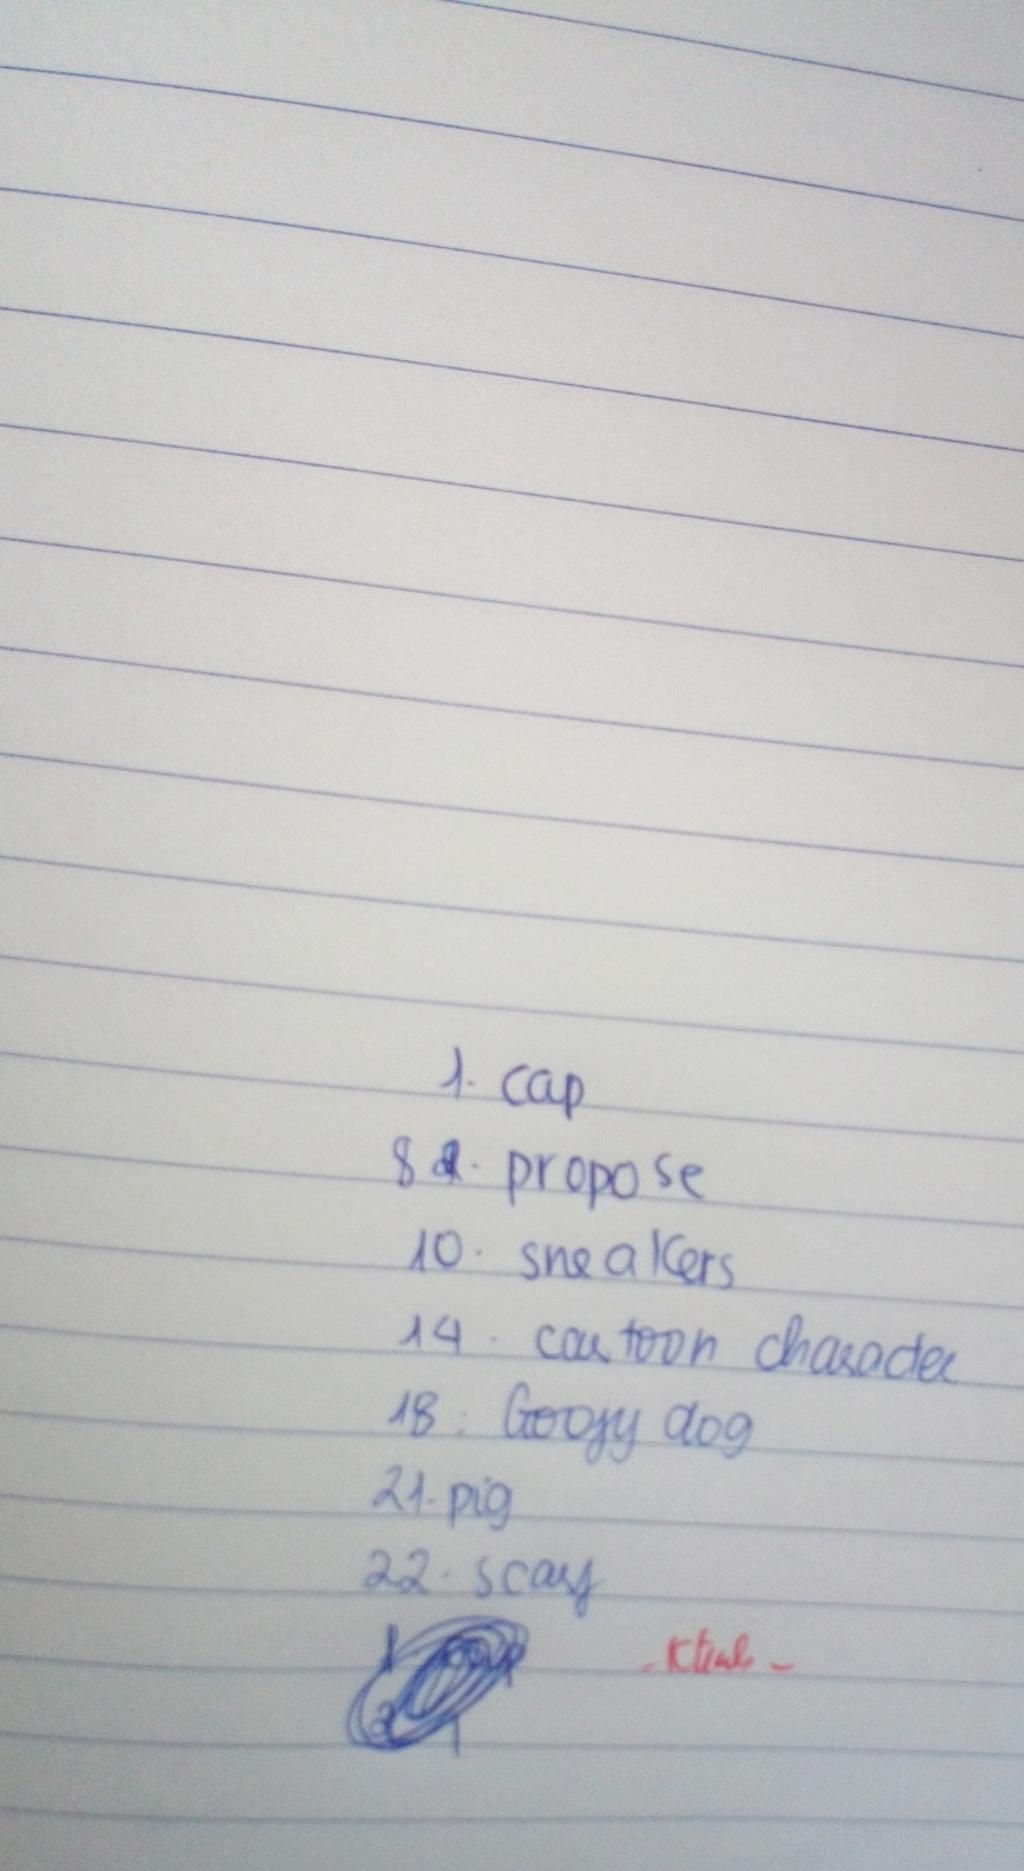 1. cap
8. propose
10. sneakers
14. cartoon character
18. Goofy dog
21. pig
22. scarf